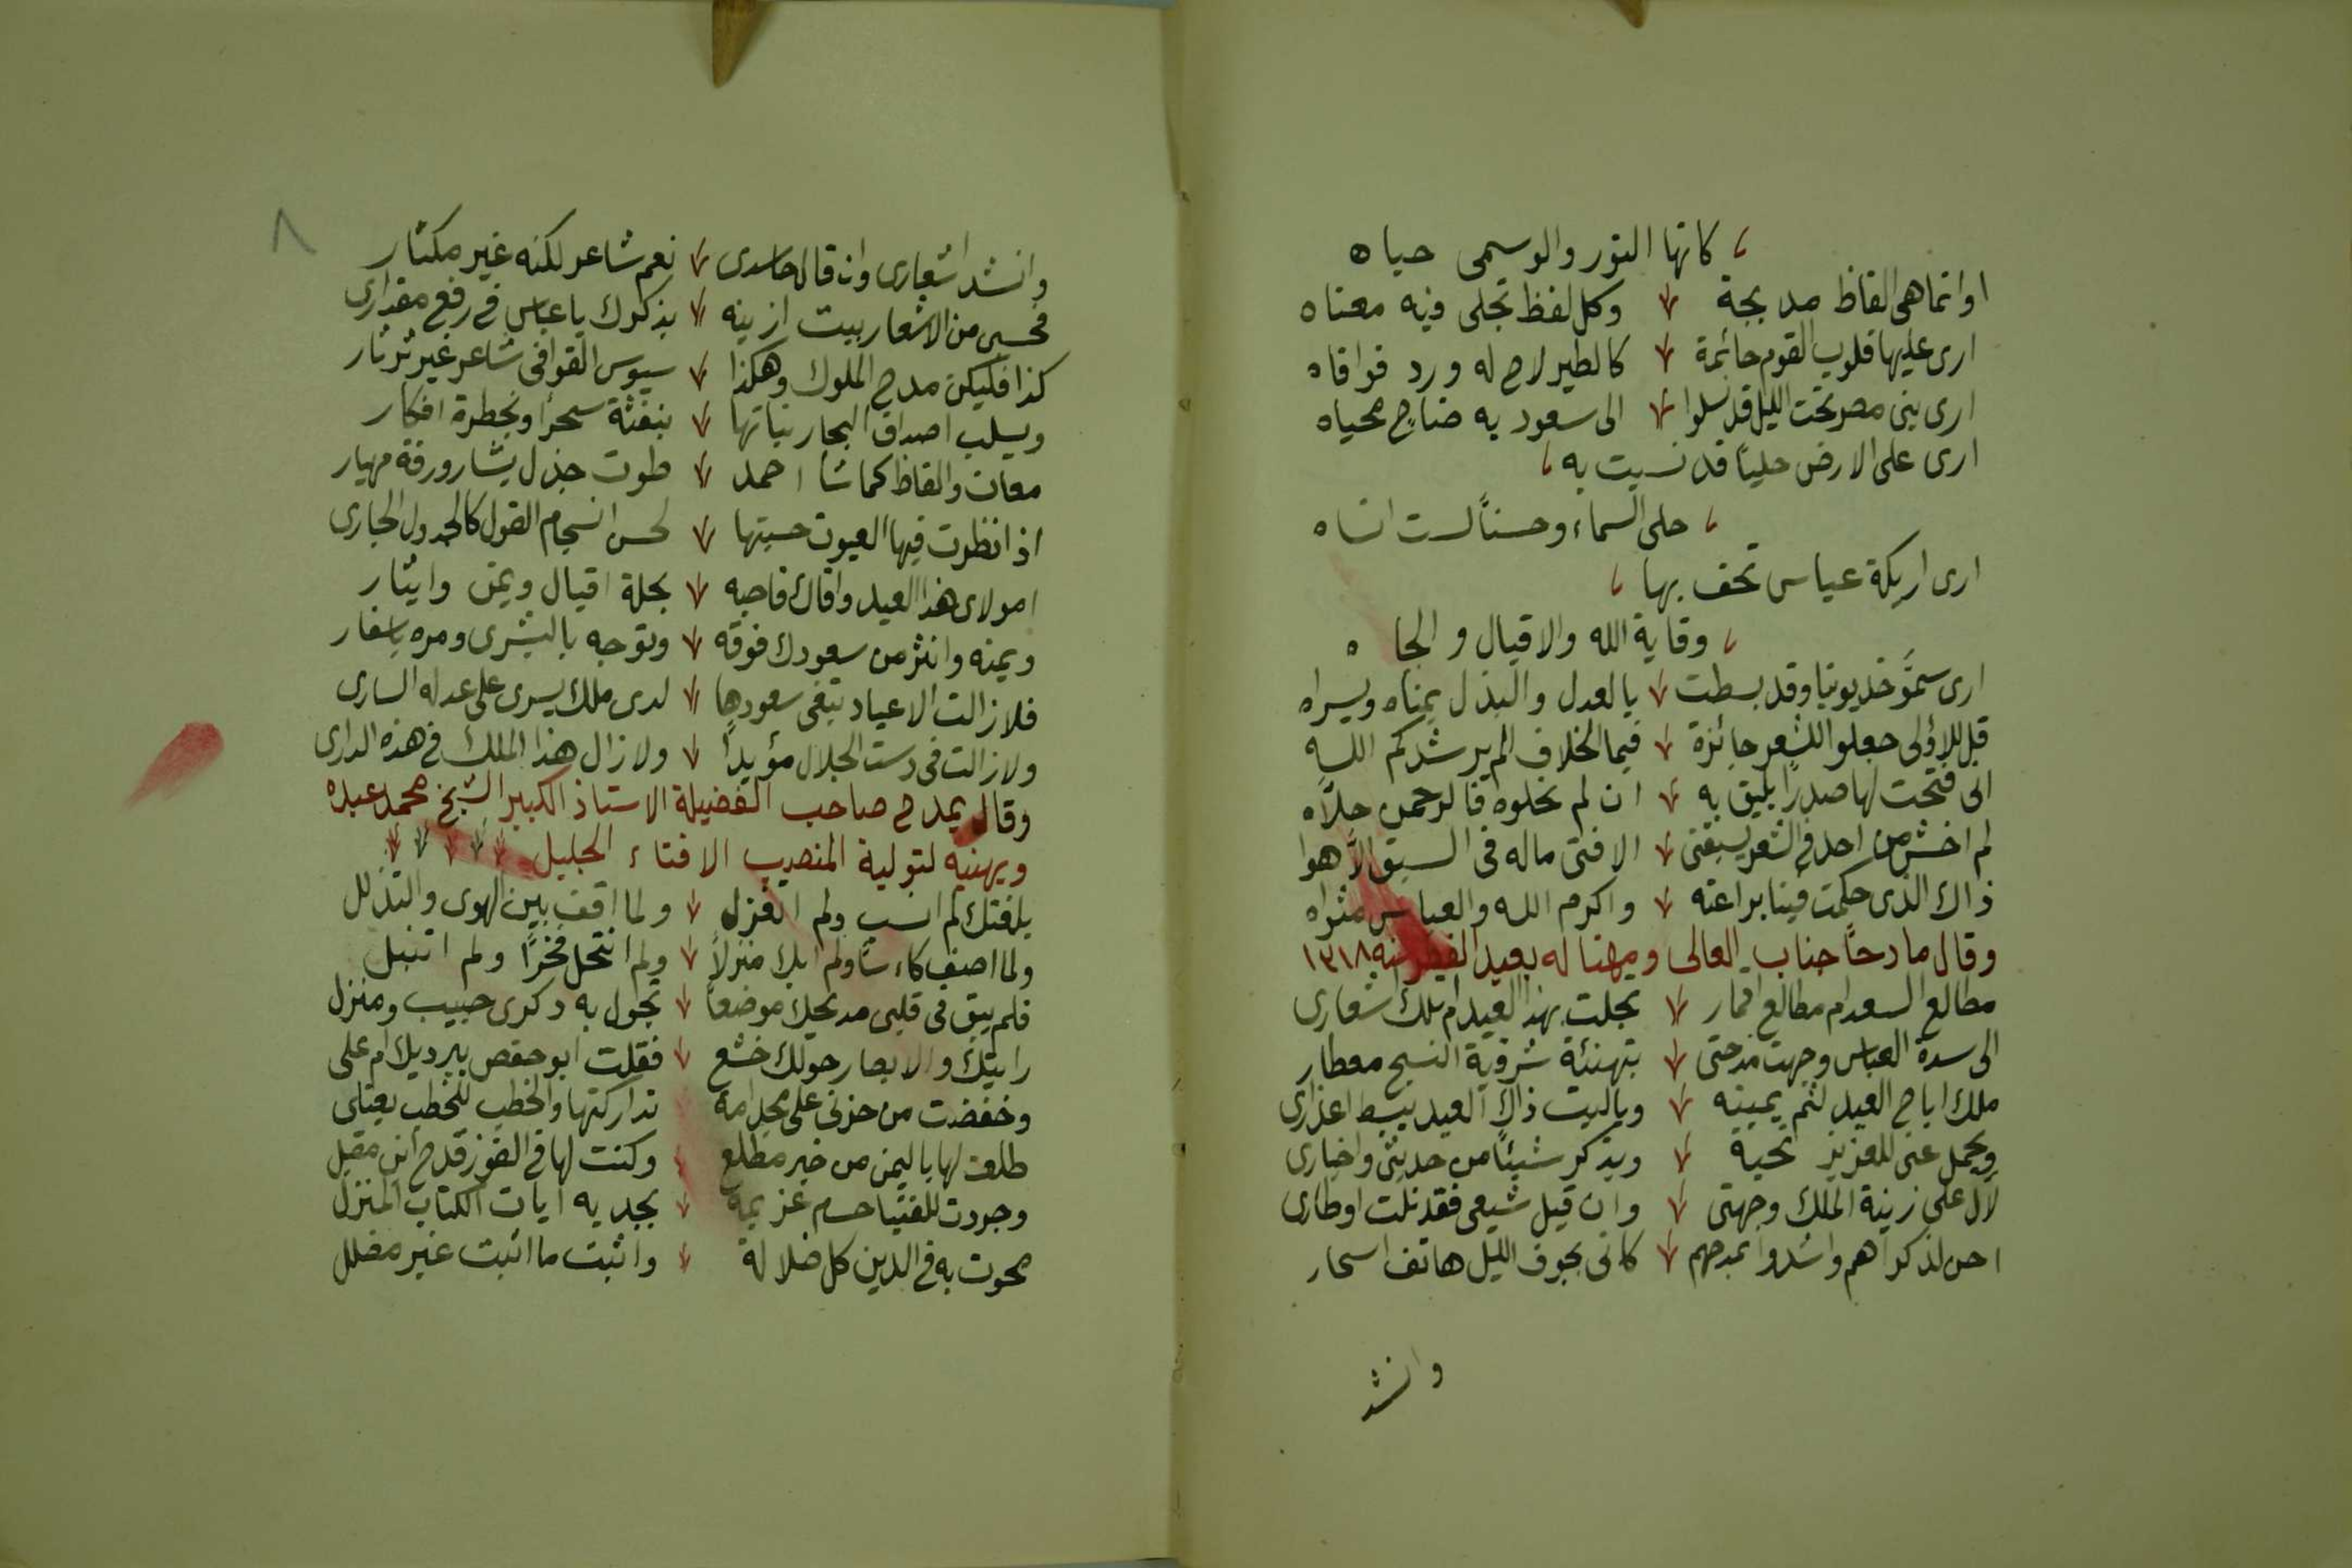 كانها النور والوسمى حياه
اوانماهى الفاظ مدبجة وكل لفظ تجلى فيه معناه
ارى عليها قلوب القوم حائمة كالطير لاح له ورد فوافاه
ارى بنى مصر تحت الليل قد نسلوا الى سعود به ضاح محياه
ارى على الارض حليًا قد نسيت به
حلى السماء وحسنًا لست انساه
ارى اريكة عباس تحف بها
وقاية الله والاقبال والجاه
ارى سموَّ خديوينا وقد بسطت بالعدل والبذل يمناه ويسراه
قل للاؤلى جعلوا للشعر جائزة فيما الخلاف الم يرشدكم الله
انى فتحت لها صدرًا يليق به ان لم تحلوه فالرحمن حلاَّه
لم اخش من احد فى الشعر يسبقنى الا فتى ماله فى السبق الاَّ هوا
ذاك الذى حكمت فينا براعته واكرم الله والعباس مثواه
وقال مادحًا جناب العالى ومهنا له بعيد الفطر سنه ١٣١٨
مطالع السعد ام مطالع اقمار تجلت بهذا العيد ام تلك اشعارى
الى سدة العباس وجهت مدحتى بتهنئة شوقية النسج معطار
ملك اباح العيد لثم يمينه وياليت ذاك العيد يبسط اعذارى
ويحمل عنى للعزيز تحية ويذكر شيئًا من حديثى واخبارى
لآل على زينة الملك وجهتى وان قيل شيعى فقد نلت اوطارى
احن لذكراهم واشدوا بمدحهم كانى بجوف الليل هاتف اسحار
وانشد
٨
وانشد اشعارى وان قال حاسدى نعم شاعر لكنه غير مكثار
فحسبى من الاشعار بيت ازينه بذكرك يا عباس فى رفع مقدارى
كذا فليكن مدح الملوك وهكذا يسوس القوافى شاعر غير ثرثار
ويسلب اصداف البحار بناتها بنفثة سحر او بخطرة افكار
معان والفاظ كما شأ احمد طوت جزل بشار ورقة مهيار
اذا نظرت فيها العيون حسبتها لحسن انسجام القول كالجدول الجارى
امولاى هذا العيد وافاك فاحبه بحلة اقبال ويمن وايثار
ويمنه وانثر من سعودك فوقه وتوجه بالبشرى ومره باسفار
فلا زالت الاعياد تبغى سعودها لدى ملك يسرى على عدله السارى
ولا زالت فى دست الجلال مؤيدًا ولا زال هذا الملك فى هذه الدارى
وقال يمدح صاحب الفضيلة الاستاذ الكبير الشيخ محمد عبده
ويهنيه لتولية المنصب الافتاء الجليل
بلغتك لم انسب ولم اتغزل ولما اقف بين الهوى والتذلل
ولما اصف كاءسًا ولم ابك منزلاً ولم انتحل فخرًا ولم اتنبل
فلم يبق فى قلبى مديحك موضعًا تجول به ذكرى حبيب ومنزل
رايتك والابصار حولك خشع فقلت ابو حفص ببرديك ام على
وخفضت من حزنى على مجد امة تداركتها والخطب للخطب يعتلى
طلعت لها باليمن من خير مطلع وكنت لها فى الفوز قدح ابن مقبل
وجردت للفتيا حسام عزيمة بجديه ايات الكتاب المنزل
محوت به فى الدين كل ضلالة واثبت ما اثبت غير مضلل